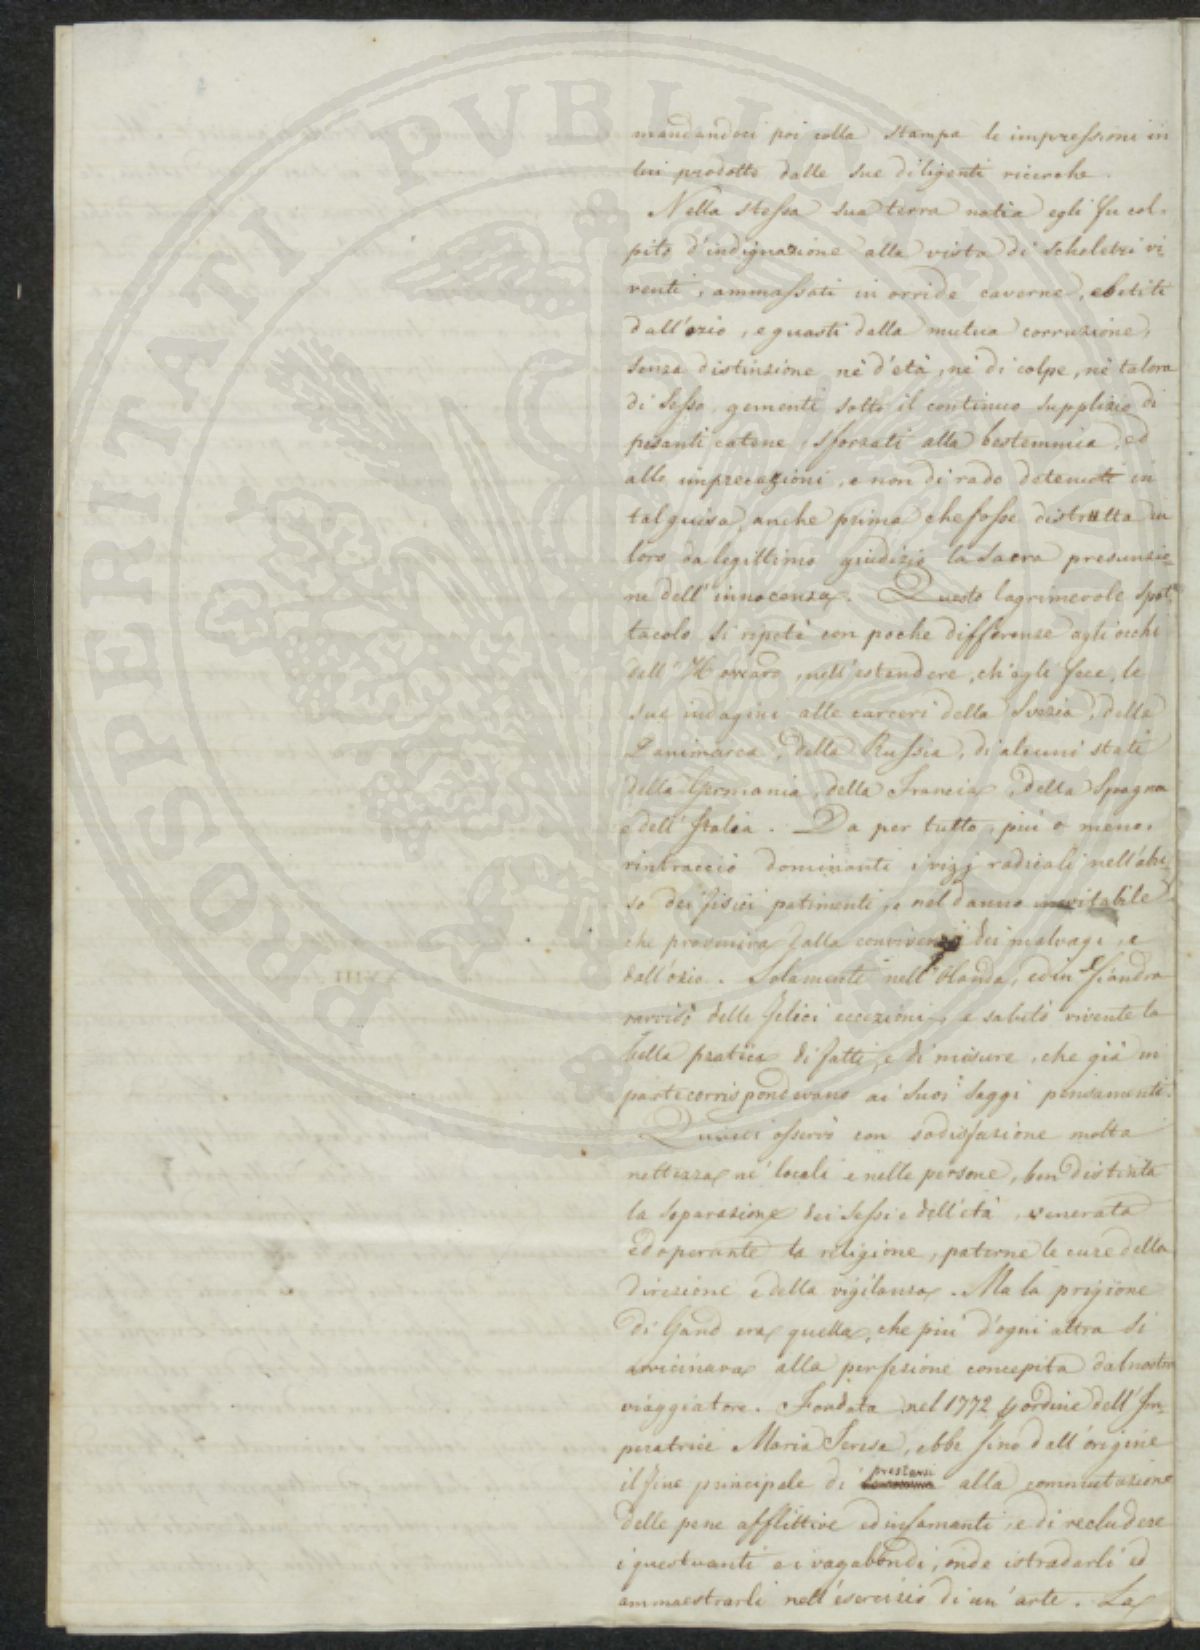 mandandoci poi colla stampa le impressioni in
lui prodotte dalle sue diligenti ricerche.
Nella stessa sua terra natia egli fu col-
pito d'indignazione alla vista di scheletri vi
venti, ammassati in orride caverne, ebetiti
dall'ozio, e guasti dalla mutua corruzione,
senza distinzione nè d'età, nè di colpe, nè talora
di sesso, gementi sotto il continuo supplizio di
pesanti catene, sforzati alla bestemmia, ed
alle imprecazioni, e non di rado detenuti in
tal guisa, anche prima che fosse distrutta in
loro da legittimo giudizio la sacra presunzio-
ne dell'innocenza. Questo lagrimevole spet-
tacolo si ripetè con poche differenze agli occhi
dell'Howard, nell'estendere, ch'egli fece, le
sue indagini alle carceri della Svezia, della
Danimarca, della Russia, di alcuni stati
della Germania, della Francia, della Spagna
e dell'Italia. Da per tutto, più o meno,
rintracciò dominanti i vizj radicali nell'abu-
so dei fisici patimenti, e nel danno inevitabile
che proveniva dalla convivenza dei malvagi, e
dall'ozio. Solamente nell'Olanda, ed in Fiandra
ravvisò delle felici eccezioni, e salutò vivente la
bella pratica di fatti, e di misure, che già in
parte corrispondevano ai suoi saggi pensamenti.
Quivi osservò con sodisfazione molta
nettezza ne' locali e nelle persone, ben distinta
la separazione dei sessi e dell'età, venerata
ed operante la religione, paterne le cure della
direzione e della vigilanza. Ma la prigione
di Gand era quella, che più d'ogni altra si
avvicinava alla perfezione concepita dal nostro
viaggiatore. Fondata nel 1772 ordine dell'Im-
peratrice Maria Teresa, ebbe fino dall'origine
il fine principale di prestarsi alla commutazione
delle pene afflittive ed infamanti, e di recludere
i questuanti e i vagabondi, onde istradarli ed
ammaestrarli nell'esercizio di un'arte. La
PROSPERITATI PVBLICAE
XVIII